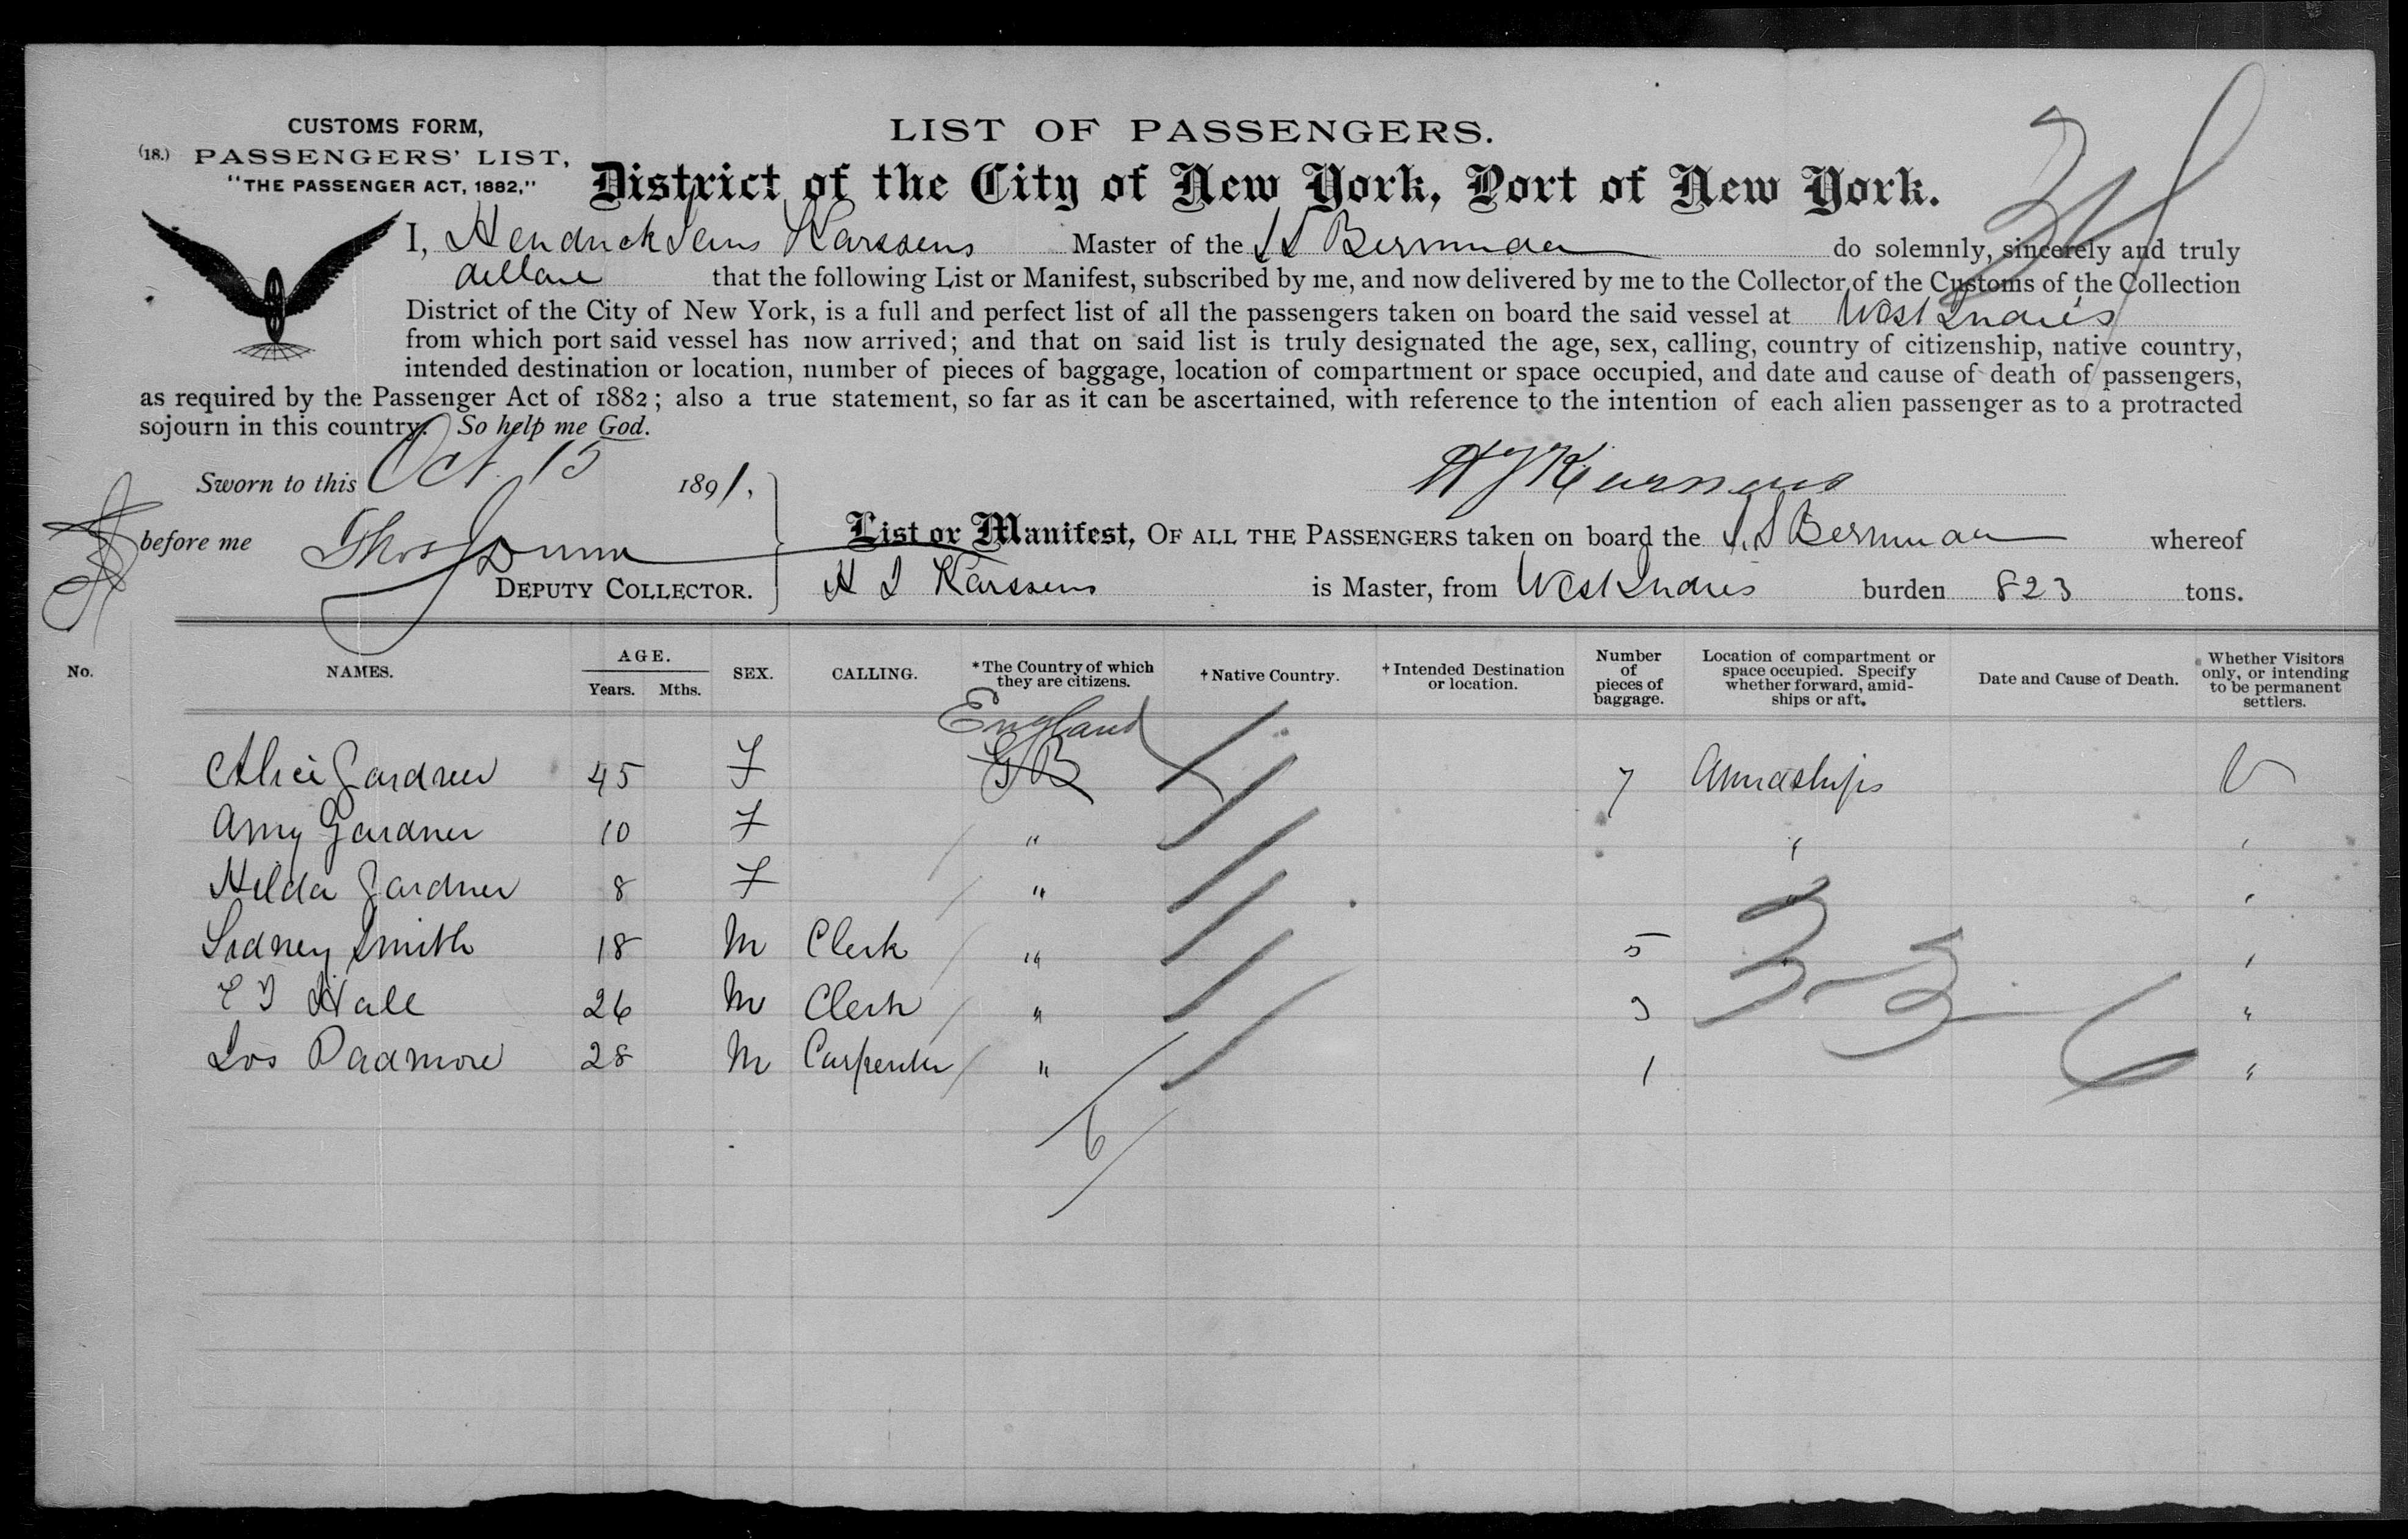 CUSTOMS FORM,
(18.) PASSENGERS' LIST,
"THE PASSENGER ACT, 1882,"
LIST OF PASSENGERS.
District of the City of New York, Port of New York.
I, Hendrick Jans Karssens Master of the SS Bermuda do solemnly, sincerely and truly
declare that the following List or Manifest, subscribed by me, and now delivered by me to the Collector of the Customs of the Collection
District of the City of New York, is a full and perfect list of all the passengers taken on board the said vessel at West Indies
from which port said vessel has now arrived; and that on said list is truly designated the age, sex, calling, country of citizenship, native country,
intended destination or location, number of pieces of baggage, location of compartment or space occupied, and date and cause of death of passengers,
as required by the Passenger Act of 1882; also a true statement, so far as it can be ascertained, with reference to the intention of each alien passenger as to a protracted
sojourn in this country. So help me God.
Sworn to this Oct 15 1891,
H J Karssens
before me Thos Dunn
DEPUTY COLLECTOR.
List or Manifest, OF ALL THE PASSENGERS taken on board the S.S Bermuda whereof
H J Karssens is Master, from West Indies burden 823 tons.
No. NAMES. AGE. Years. Mths. SEX. CALLING. *The Country of which they are citizens. †Native Country. †Intended Destination or location. Number of pieces of baggage. Location of compartment or space occupied. Specify whether forward, amidships or aft. Date and Cause of Death. Whether Visitors only, or intending to be permanent settlers.
England
Alice Gardner 45 F GB 7 Amidships V
Amy Gardner 10 F " " "
Hilda Gardner 8 F " " "
Sidney Smith 18 M Clerk " 5 " "
Hall 26 M Clerk " 3 "
Jos Padmore 28 M Carpenter " 1 "
3-3-6
6